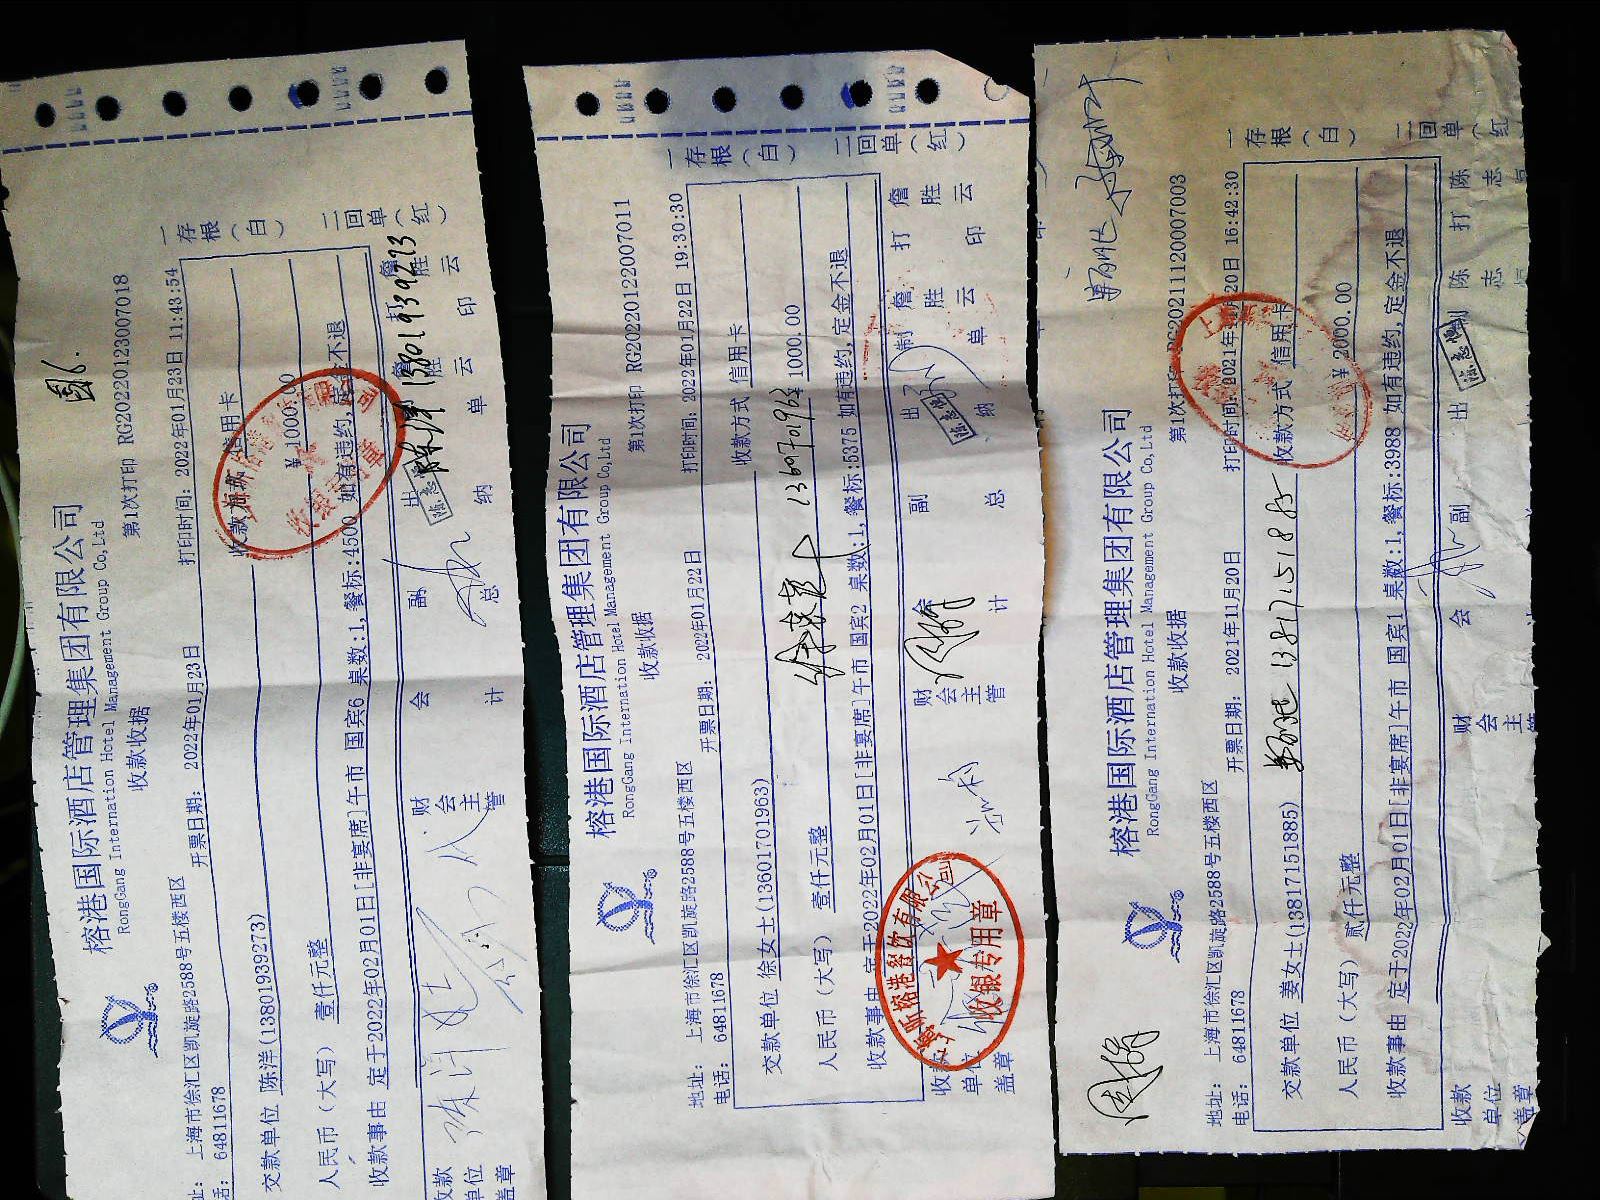 国6.
榕港国际酒店管理集团有限公司
RongGang International Hotel Management Group Co,Ltd
收款收据
第1次打印 RG20220123007018
地址: 上海市徐汇区凯旋路2588号五楼西区
电话: 64811678
开票日期: 2022年01月23日
打印时间: 2022年01月23日 11:43:54
交款单位 陈洋(13801939273)
收款方式 信用卡
人民币(大写) 壹仟元整
¥ 1000.00
收款事由 定于2022年02月01日[非宴席]午市 国宾6 桌数:1,餐标:4500 如有违约,定金不退
一存根(白) 二回单(红)
收款单位盖章
财会主管
会计
副总
出纳
制单 詹胜云
打印 詹胜云
陈洋 13801939273
榕港国际酒店管理集团有限公司
RongGang International Hotel Management Group Co,Ltd
收款收据
第1次打印 RG20220122007011
地址: 上海市徐汇区凯旋路2588号五楼西区
电话: 64811678
开票日期: 2022年01月22日
打印时间: 2022年01月22日 19:30:30
交款单位 徐女士(13601701963)
收款方式 信用卡
13601701963
人民币(大写) 壹仟元整
¥ 1000.00
收款事由 定于2022年02月01日[非宴席]午市 国宾2 桌数:1,餐标:5375 如有违约,定金不退
一存根(白) 二回单(红)
收款单位盖章
财会主管
会计
副总
出纳
制单 詹胜云
打印 詹胜云
上海斯榕港餐饮有限公司
收银专用章
榕港国际酒店管理集团有限公司
RongGang International Hotel Management Group Co,Ltd
收款收据
第1次打印 RG20211120007003
地址: 上海市徐汇区凯旋路2588号五楼西区
电话: 64811678
开票日期: 2021年11月20日
打印时间: 2021年11月20日 16:42:30
交款单位 姜女士(13817151885)
13817151885
收款方式 信用卡
人民币(大写) 贰仟元整
¥ 2000.00
收款事由 定于2022年02月01日[非宴席]午市 国宾1 桌数:1,餐标:3988 如有违约,定金不退
一存根(白) 二回单(红
收款单位盖章
财会主管
会
副
出
制 陈志
打 陈志